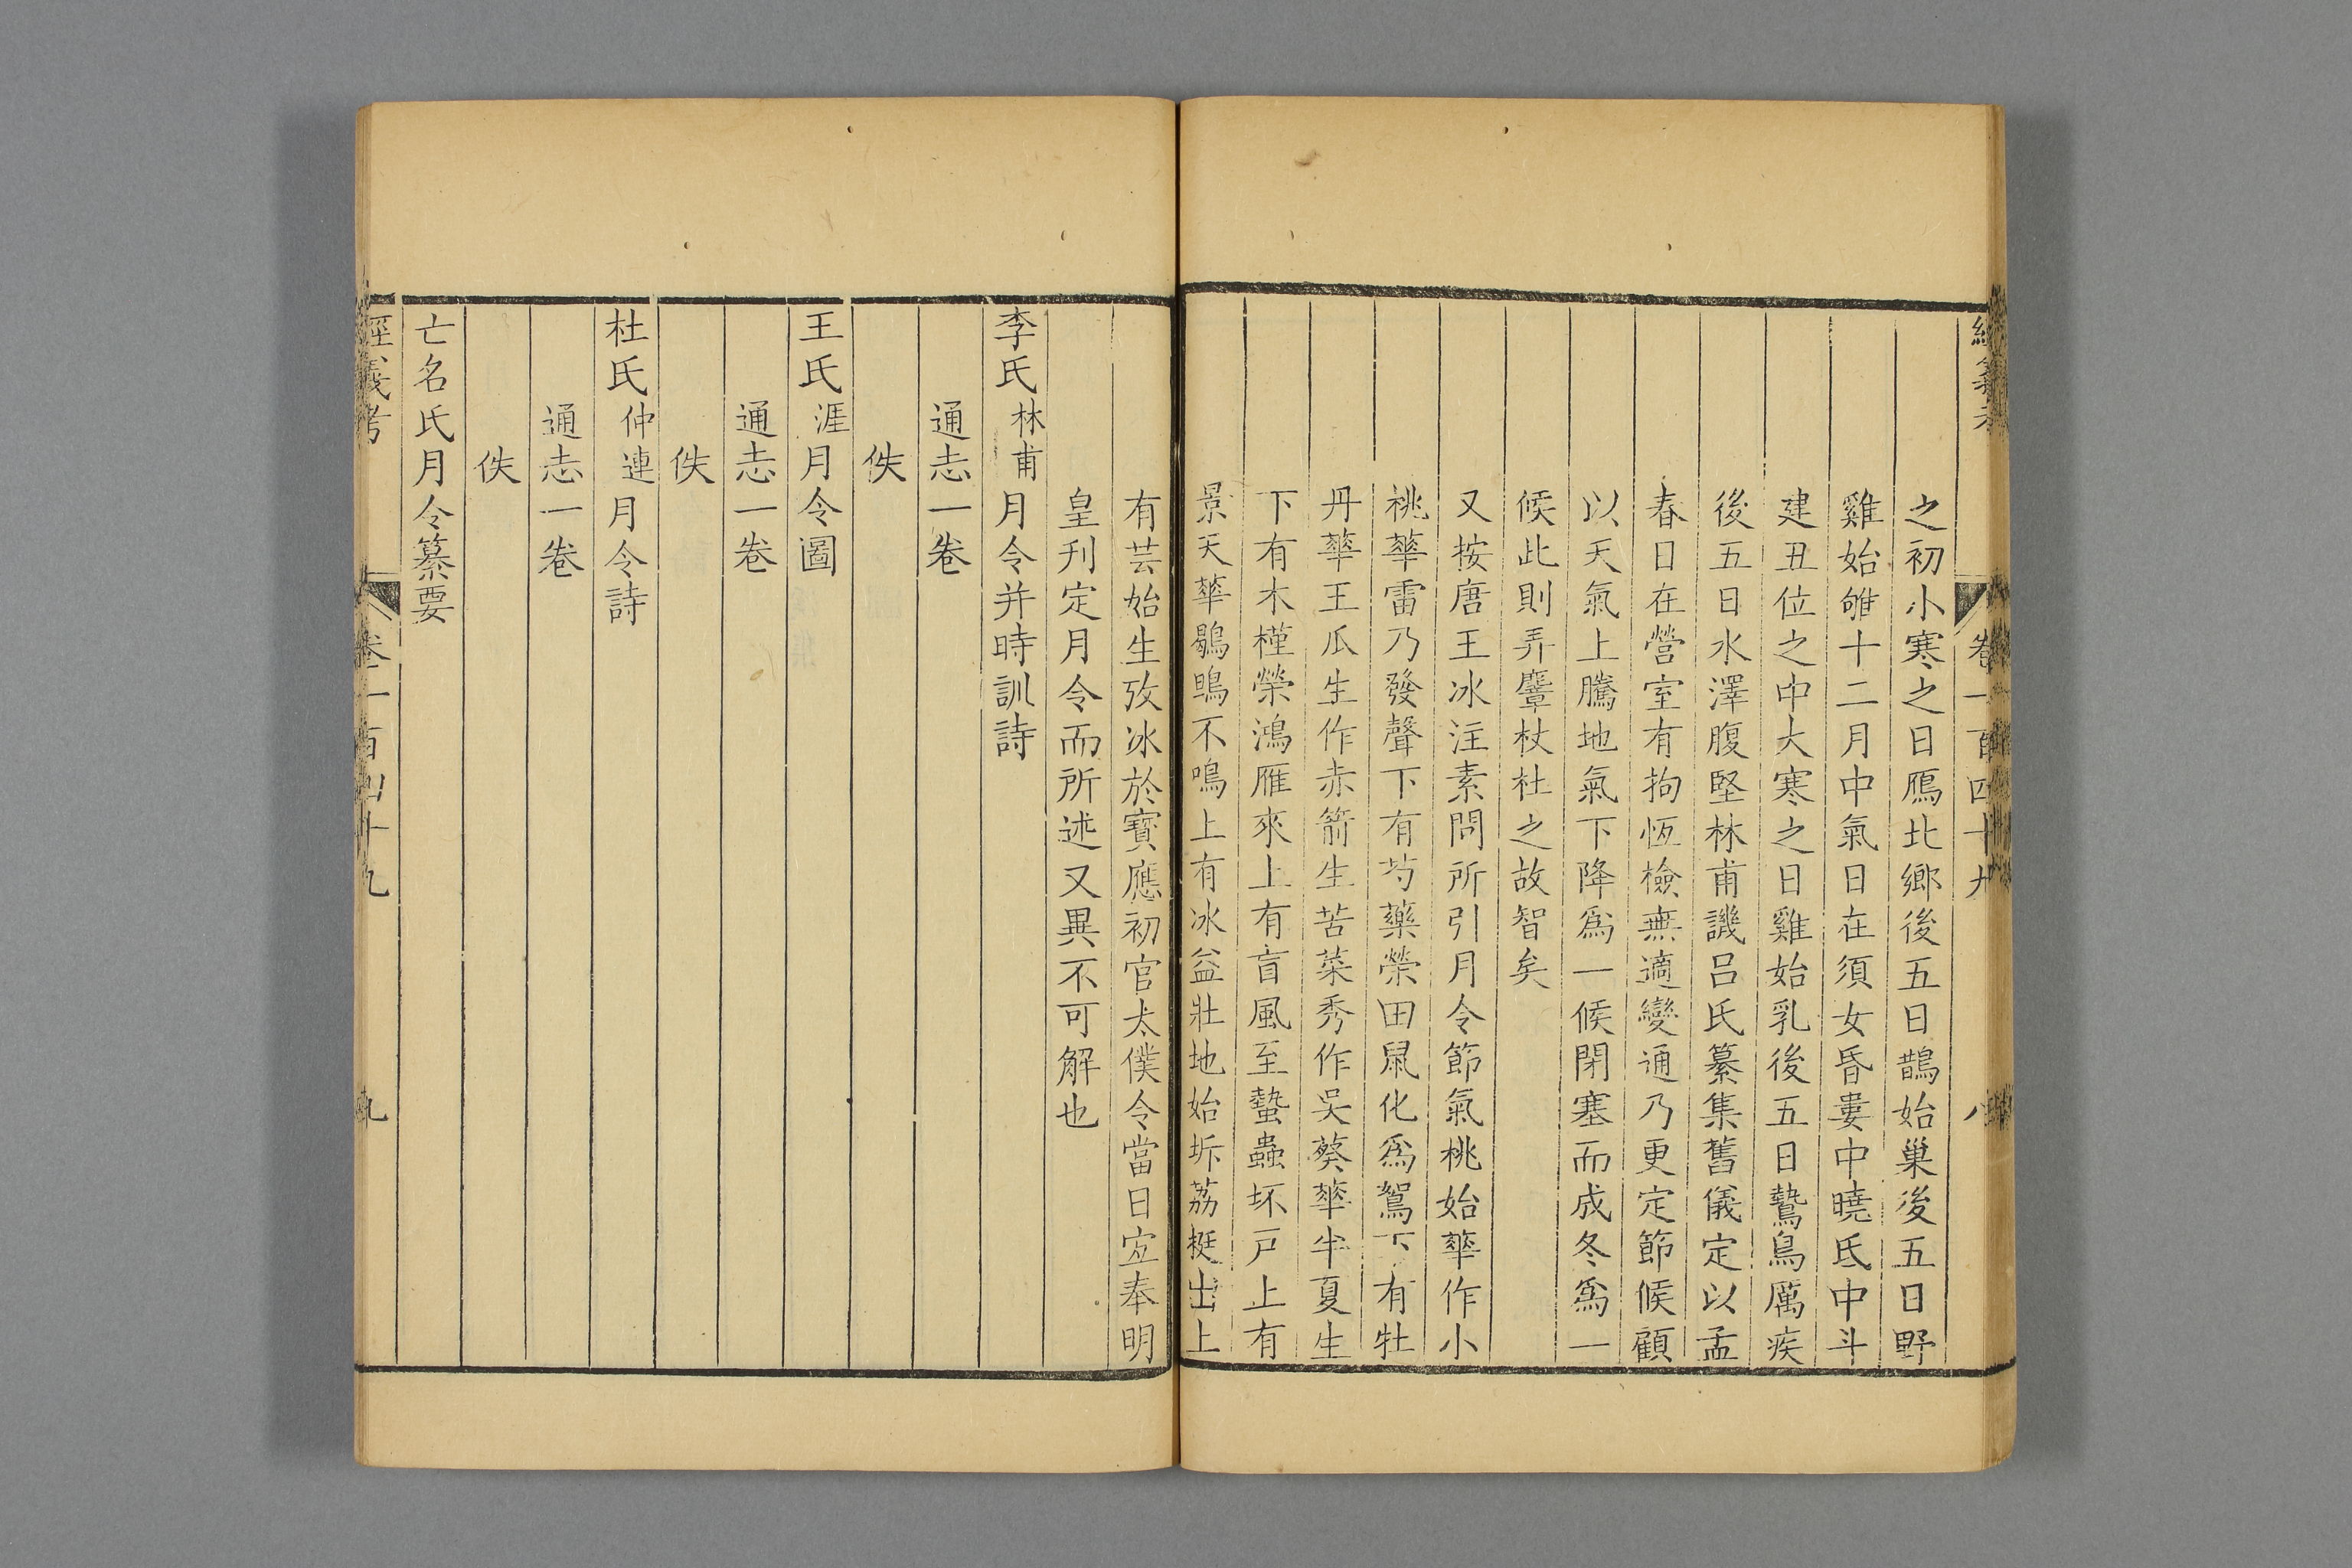 經義考　卷一百四十九　八
之初小寒之日鴈北鄉後五日鵲始巢後五日野
雞始雊十二月中氣日在須女昏婁中曉氐中斗
建丑位之中大寒之日雞始乳後五日鷙鳥厲疾
後五日水澤腹堅林甫譏呂氏纂集舊儀定以孟
春日在營室有拘恆檢無適變通乃更定節候顧
以天氣上騰地氣下降爲一候閉塞而成冬爲一
候此則弄麞杖杜之故智矣
又按唐王冰注素問所引月令節氣桃始華作小
桃華雷乃發聲下有芍藥榮田鼠化爲鴽下有牡
丹華王瓜生作赤箭生苦菜秀作吳葵華半夏生
下有木槿榮鴻雁來上有盲風至蟄蟲坏戸上有
景天華鶡鴠不鳴上有冰益壯地始坼荔挺出上
有芸始生攷冰於寶應初官太僕令當日宐奉明
皇刋定月令而所述又異不可解也
李氏林甫月令并時訓詩
通志一卷
佚
王氏涯月令圖
通志一卷
佚
杜氏仲連月令詩
通志一卷
佚
亡名氏月令纂要
經義考　卷一百四十九　九